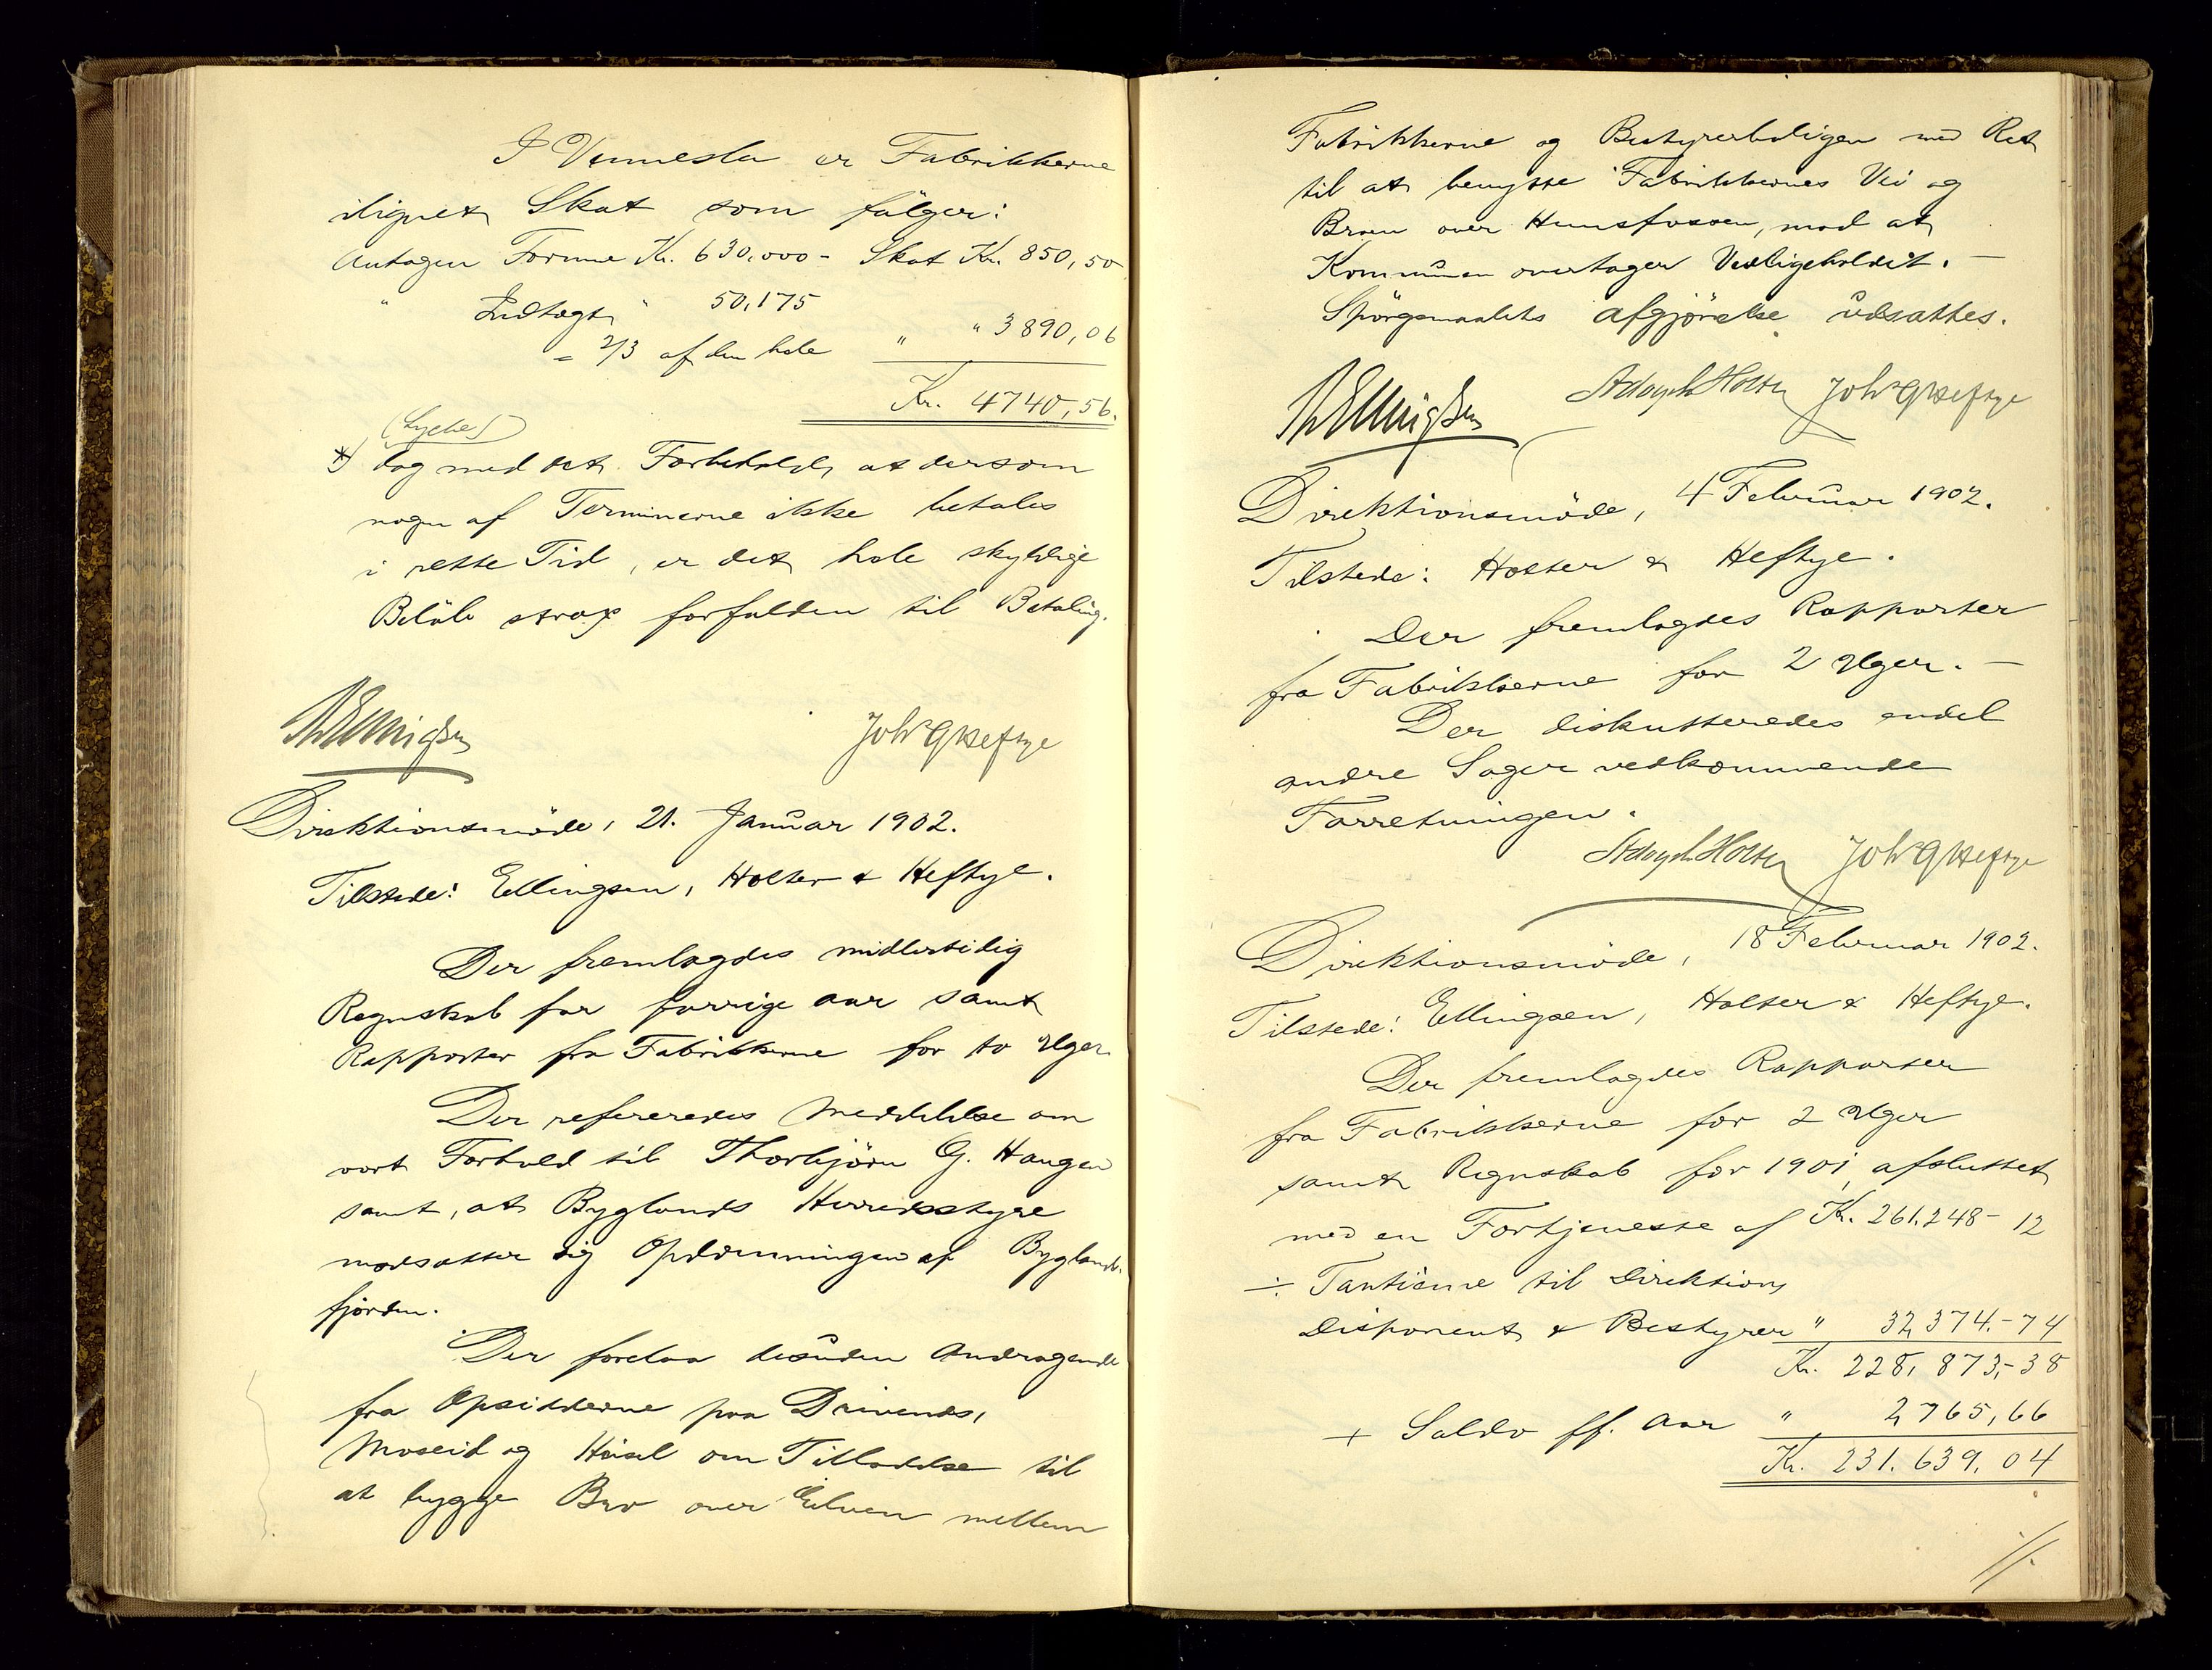 I Vennesla er Fabrikkerne
ilignet Skat som følger:
Antagen Formue Kr. 630.000 - Skat Kr. 850,50
" Indtægt " 50,175
= 2/3 af den hele " " 3890,06
Kr. 4740,56.
(Lyche)
*) dog med det Forbehold, at dersom
nogen af Terminerne ikke betales
i rette Tid, er det hele skyldige
Beløb strax forfalden til Betaling.
ThEllingsen Joh's G Heftye
Direktionsmöde, 21. Januar 1902.
Tilstede: Ellingsen, Holter & Heftye.
Der fremlagdes midlertidig
Regnskab for forrige aar samt
Rapporter fra Fabrikkerne for to Uger.
Der refereredes Meddelelse om
vort Forhold til Thorbjörn G. Haugen
samt, at Byglands Herredsstyre
modsætter sig Opdæmningen af Byglands-
fjorden.
Der forelaa desuden Andragende
fra Opsidderne paa Drivenes,
Moseid og Heisel om Tilladelse til
at bygge Bro over Elven mellem
Fabrikkerne og Bestyrerboligen med Ret
til at benytte Fabrikkernes Vei og
Broen over Hunsfossen, mod at
Kommunen overtager Vedligeholdet. -
Spörgsmaalets afgjörelse udsattes.
ThEllingsen Adolph Holter Joh's G Heftye
Direktionsmöde, 4 Februar 1902.
Tilstede: Holter & Heftye.
Der fremlagdes Rapporter
fra Fabrikkerne for 2 Uger. -
Der diskutteredes endel
andre Sager vedkommende
Forretningen.
Adolph Holter Joh's G Heftye
Direktionsmöde, 18 Februar 1902.
Tilstede: Ellingsen, Holter & Heftye.
Der fremlagdes Rapporter
fra Fabrikkerne for 2 Uger
samt Regnskab for 1901, afsluttet
med en Fortjeneste af Kr. 261.248-12
÷ Tantième til Direktion,
Disponent & Bestyrer " 32,374.-74
Kr. 228,873,-38
+ Saldo ff. Aar " 2,765,66
Kr. 231.639.04
·/.